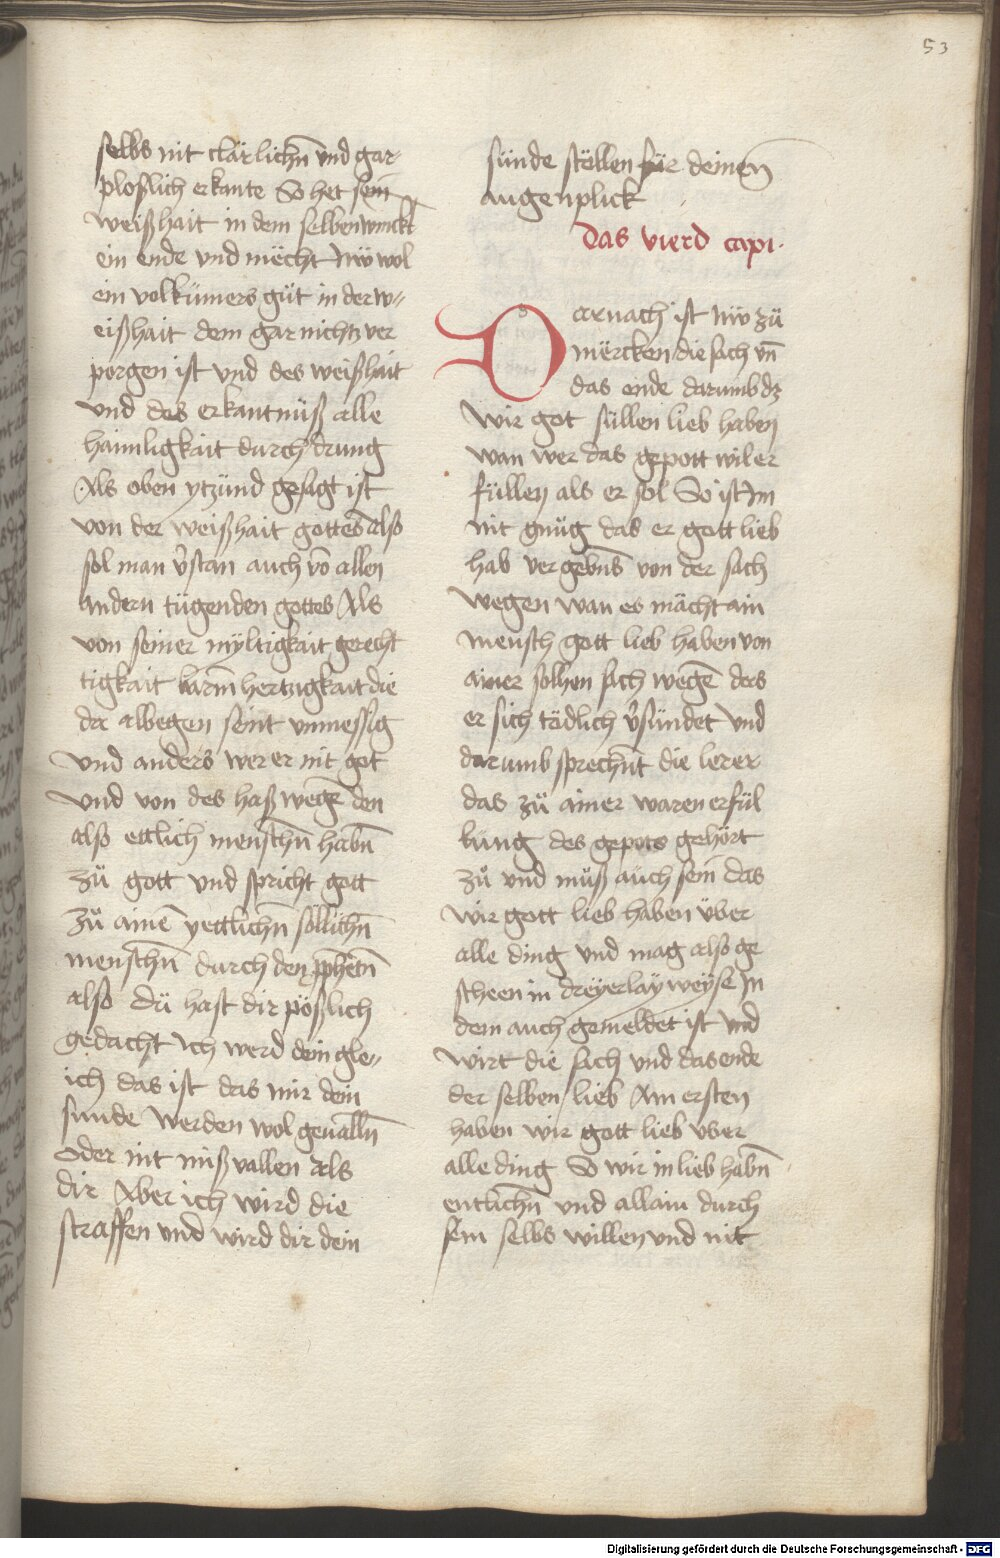 53
selbs nit clärlichn̄ vnd gar
ploslich erkante So het sein
weißhait in dem selben winckl
ein ende vnd mecht nw wol
ein volkumers güt in der w〃
eißhait dem gar nichtz ver
porgen ist vnd des weißhait
vnd des erkantnüß alle
haimligkait durch drung
Als oben ytzünd gesagt ist
von der weißhait gottes also
sol man v̄stan auch vō allen
andern tügenden gottes Als
von seiner myltigkait gerecht
tigkait barm̄hertzigkait die
da albegen seint vnmessig
vnd anders wer er nit got
vnd von des haß wegē den
also ettlich menschn̄ habn̄
zü gott vnd spricht gott
Zü ainē yettlichn̄ söllichn̄
menschn̄ durch den pphetn̄
also dü hast dir pößlich
gedacht ich werd dein gle〃
ich das ist das mir dein
sunde werden wol geualln̄
oder nit mißuallen als
dir Aber ich wird die
straffen vnd wird dir dein
sünde stellen für deinen
augenplick
das vierd capi.
Darnach ist nw zü
mercken die sach vn̄
das ende darumb dz
wir got süllen lieb haben
wan wer das gepott wil er
füllen als er sol So ist im
nit gnüg das er gott lieb
hab vergebn̄s von der sach
wegen wan es mächt ain
mensch gott lieb haben von
ainer solhen sach wegē das
er sich tödlich v̄sündet vnd
darumb sprechn̄t die lerer
das zü ainer waren erfül
lung des gepots gehört
zü vnd müß auch sein das
wir gott lieb haben über
alle ding vnd mag also ge
scheen in dreyerlay weyse In
dem auch gemeldet ist vnd
wirt die sach vnd das ende
der selben lieb Am ersten
haben wir gott lieb vber
alle ding So wir in lieb habn̄
entlichn̄ vnd allain durch
sein selbs willen vnd nit
Digitalisierung gefördert durch die Deutsche Forschungsgemeinschaft - DFG